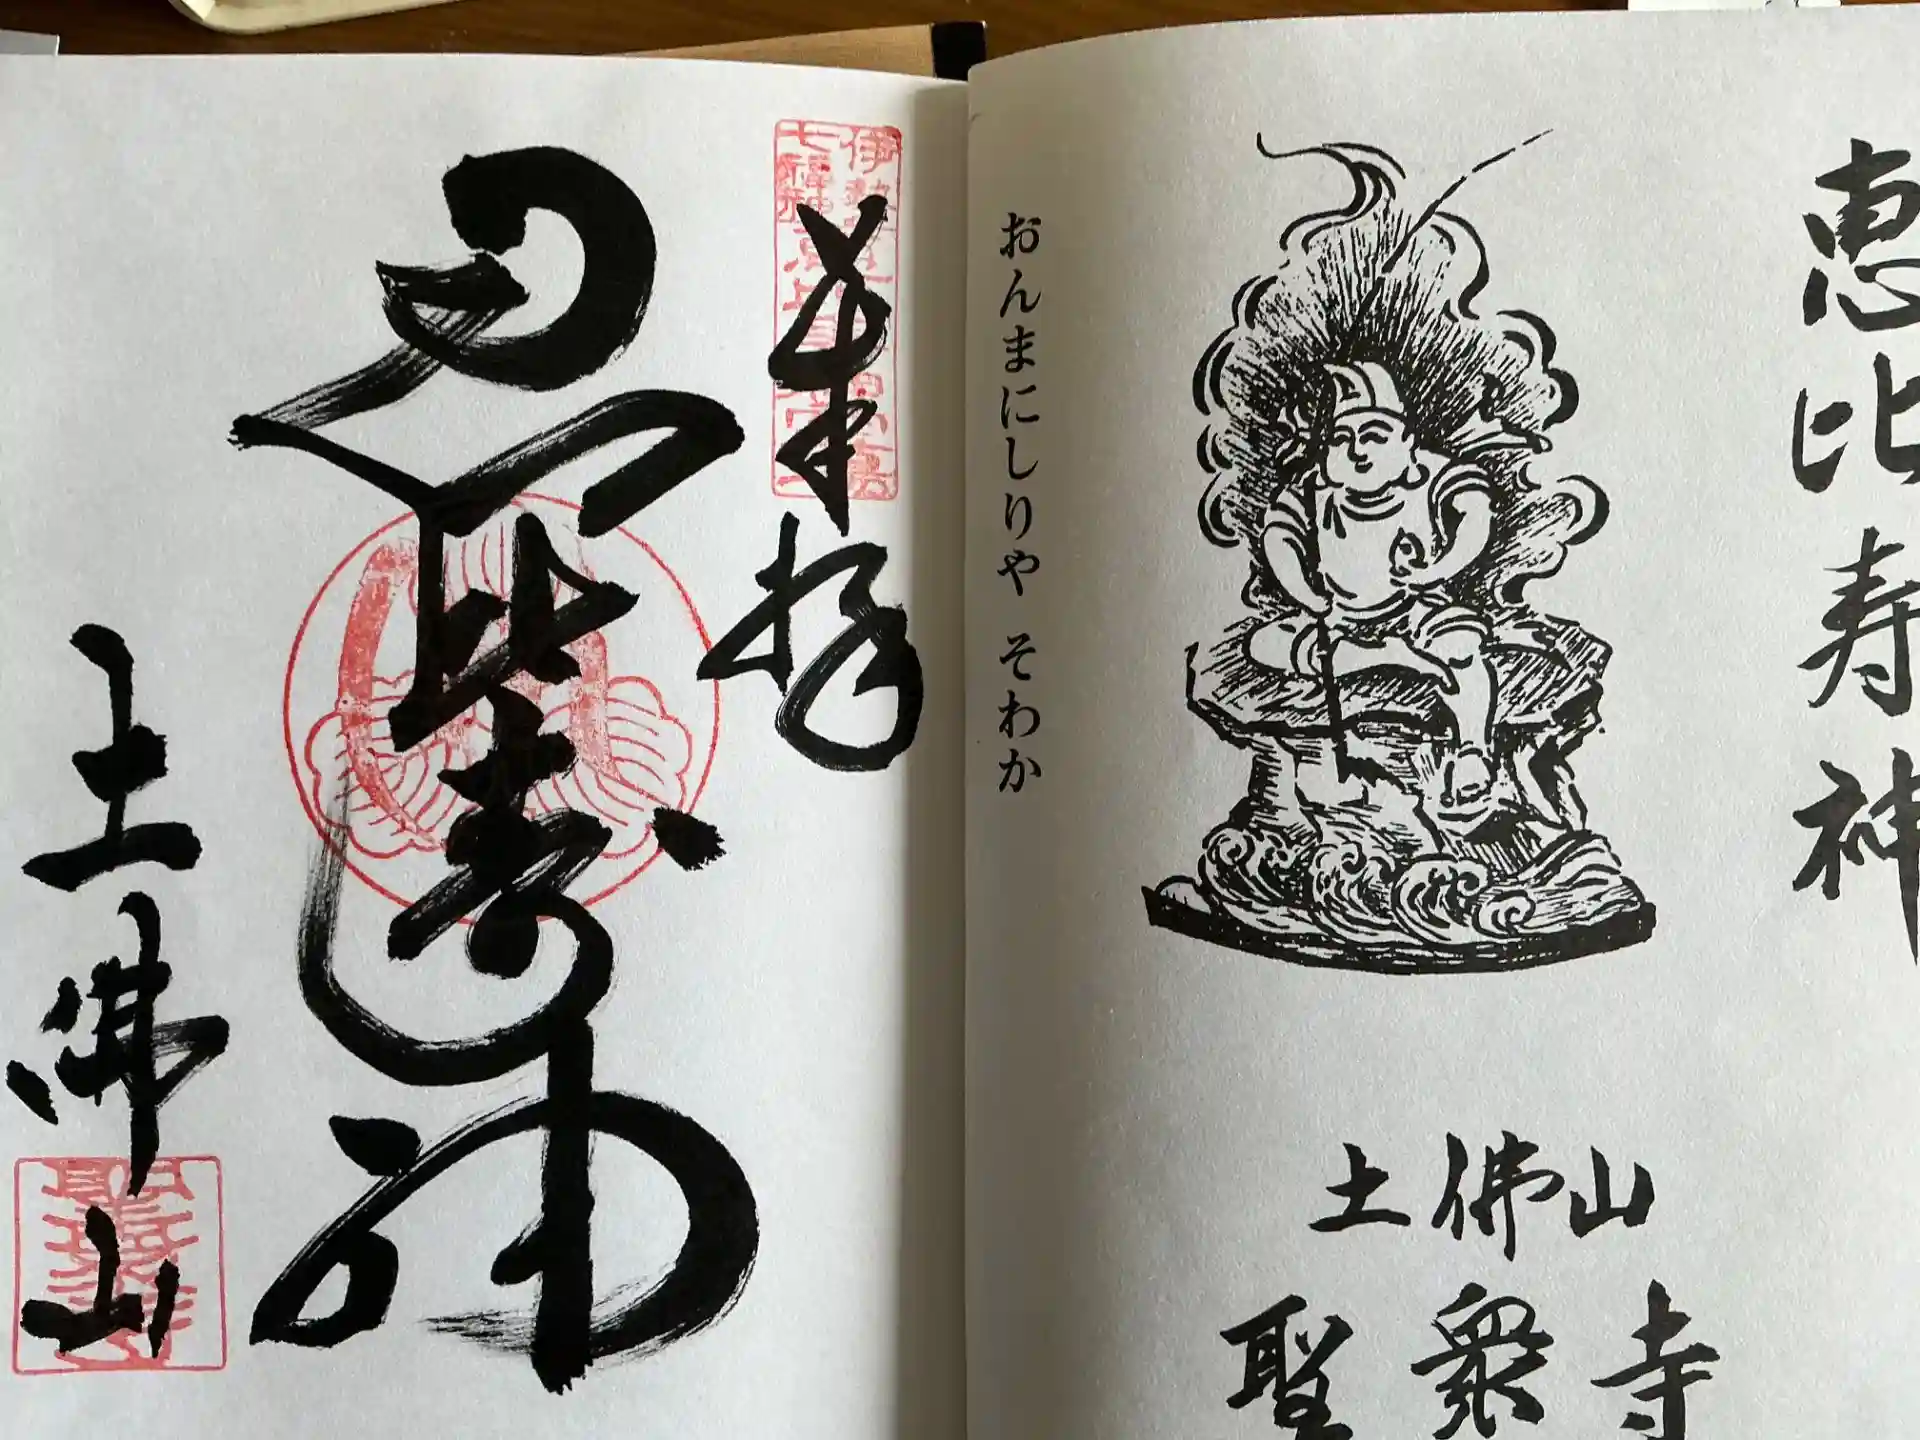 恵比寿神
おんまにしりや そわか
土佛山
聖衆寺
奉拝
恵比寿神
土佛山